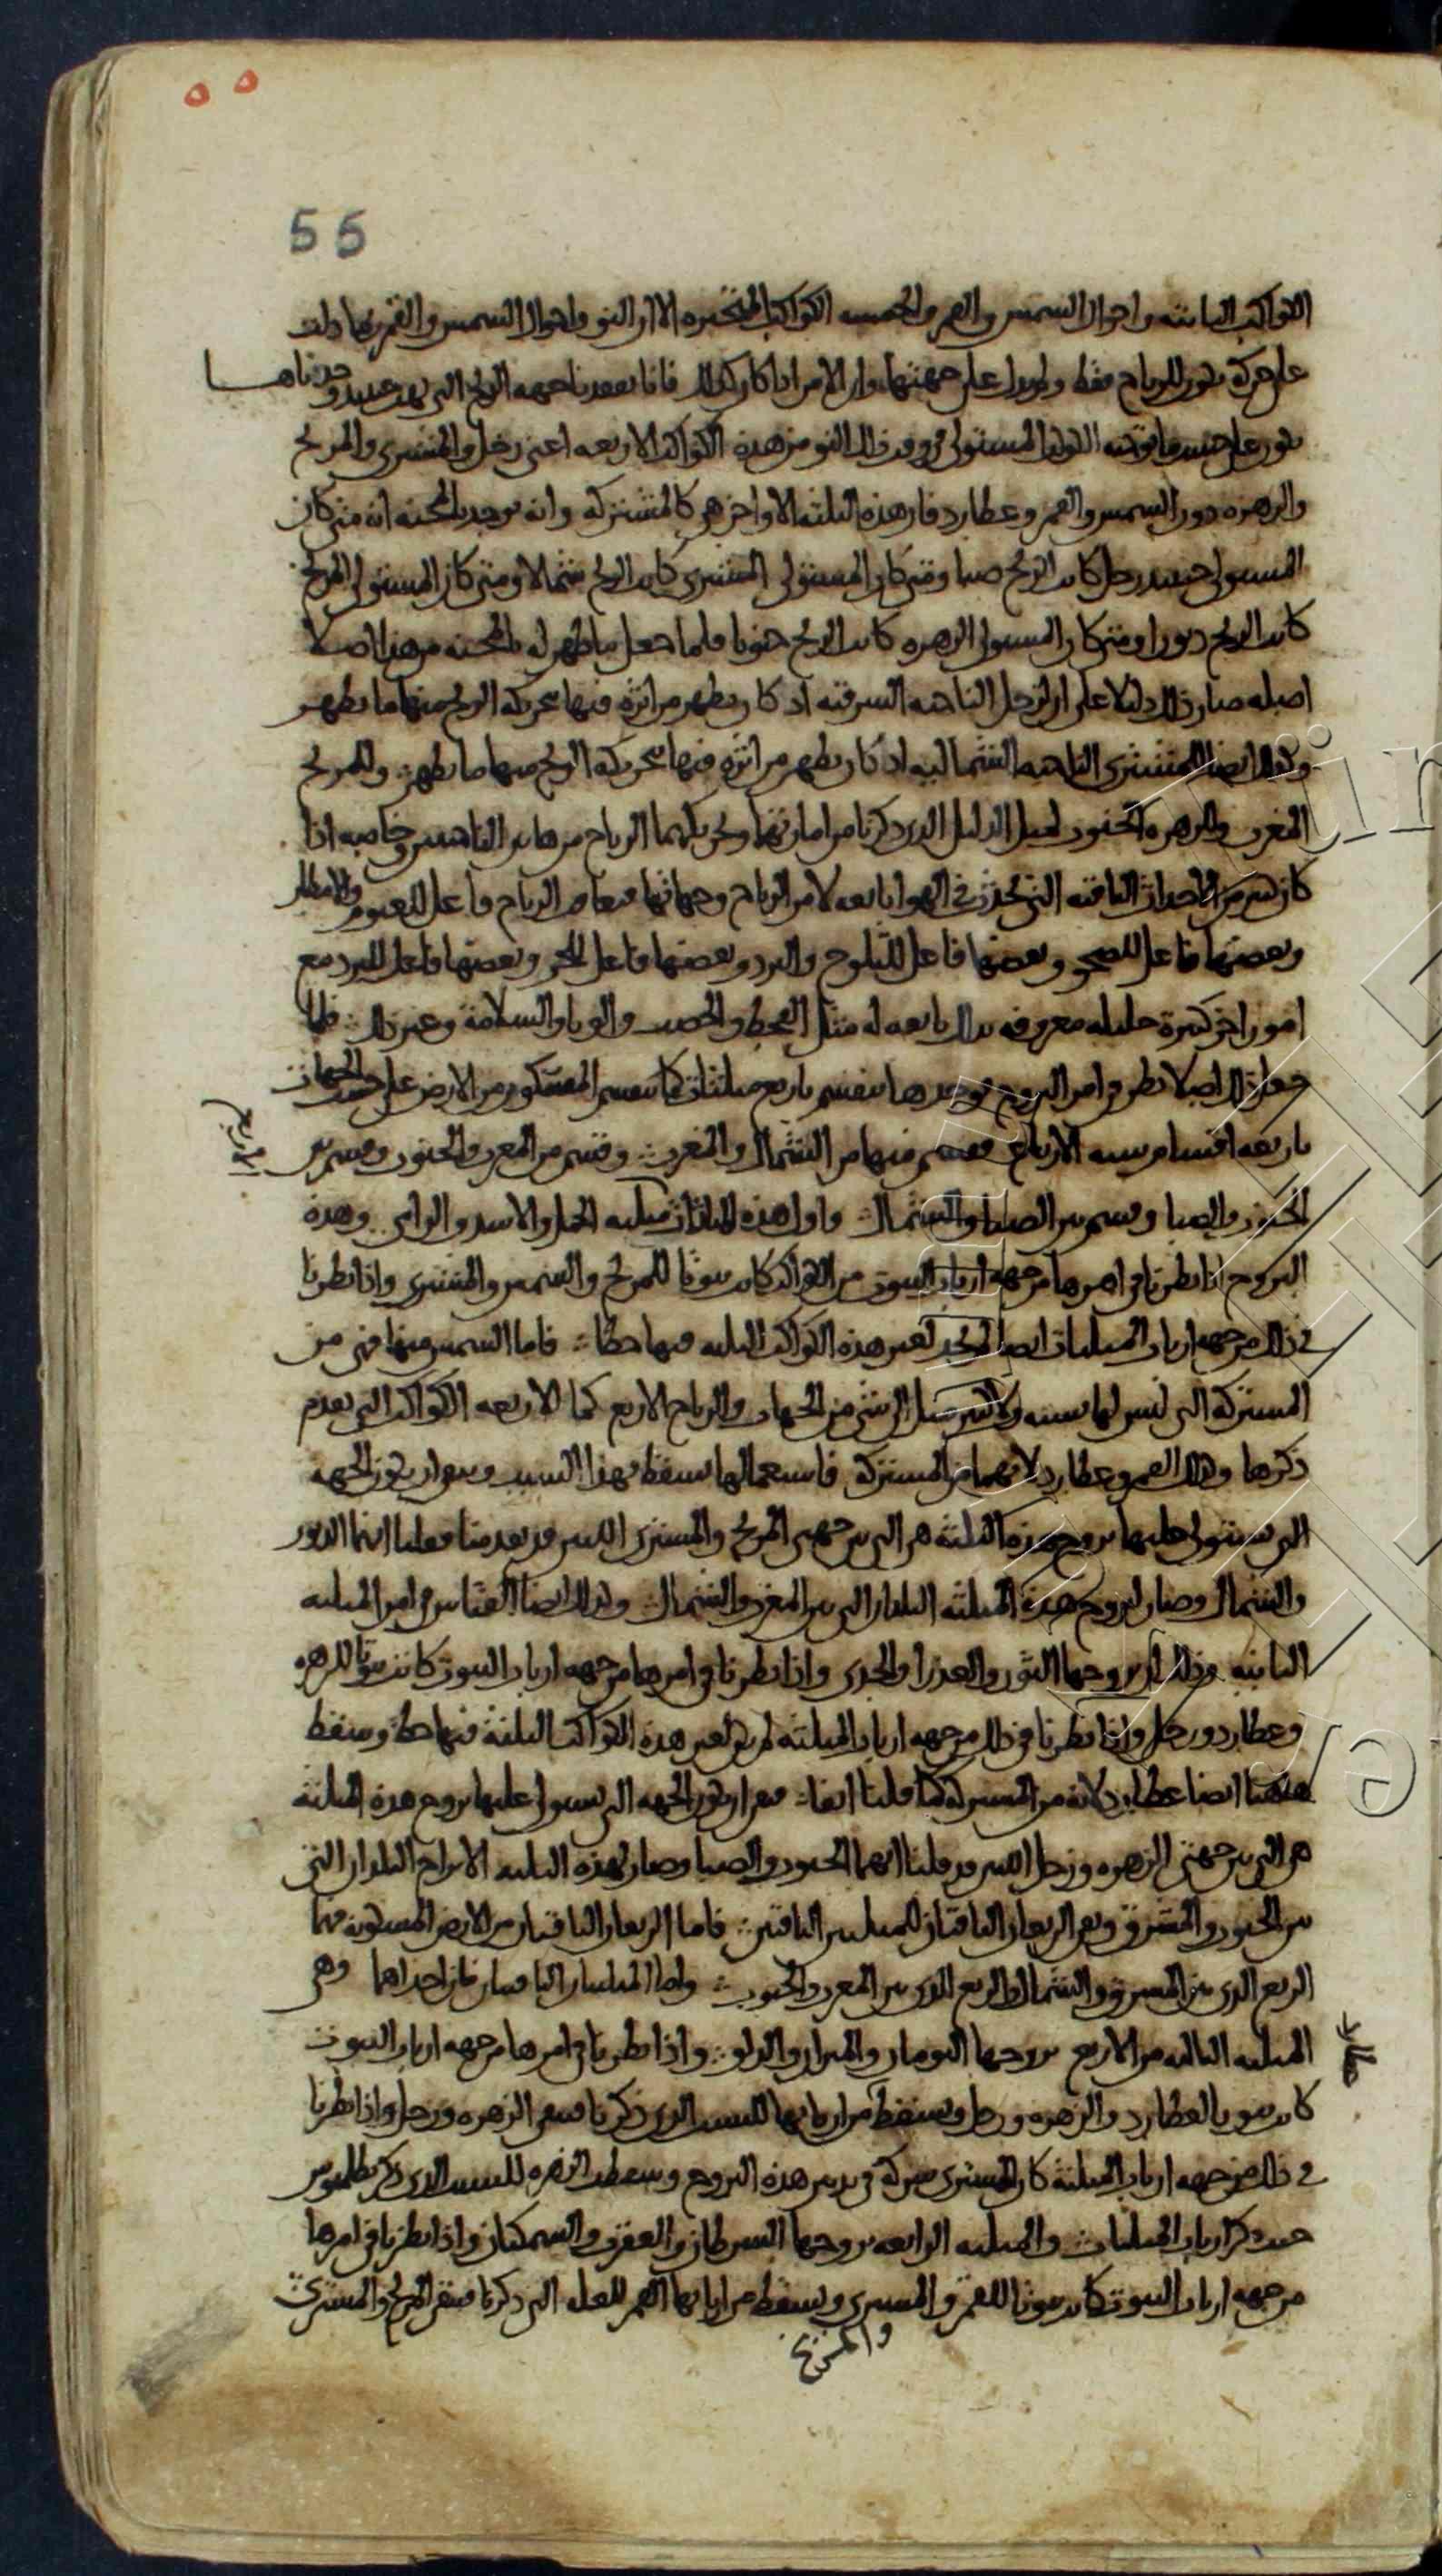 ٥٥
55
الكواكب الثابته واحوال الشمس والقمر والخمسه الكواكب المتحيره الا ان النو واحوال الشمس والقمر ربما دلت
على حركة تكون للرياح فقط ولم يدل على جهتها وان الامر اذا كان كذلك فانا تفقدنا جهه الريح التى تهب عند ذلك وجدناها
تكون على حسب ما توجبه الكوكب المستولى فى وقت ذلك النو من هذه الكواكب الاربعه اعنى زحل والمشترى والمريخ
والزهره دون الشمس والقمر وعطارد فان هذه الثلثه الاواخر هى كالمشتركه وانه يوجد بالمحنه انه متى كان
المستولى حينئذ زحل كانت الريح صبا ومتى كان المستولى المشترى كانت الريح شمالا ومتى كان المستولى المريخ
كانت الريح دبورا ومتى كان المستولى الزهره كانت الريح جنوبا فلما جعل ما ظهر له بالمحنه من هذا اصلا
اصله صار ذلك دليلا على ان لزحل الناحيه الشرقيه اذ كان يظهر من اثره فيها بتحريكه الريح منها ما يظهر
وكذلك ايضا للمشترى الناحيه الشماليه اذ كان يظهر من اثره فيها بتحريكه الريح منها ما يظهر وللمريخ
المغرب وللزهره الجنوب لمثل الدليل الذى ذكرنا من اماراتهما وتحريكهما الرياح من هاتين الناحيتين وخاصه اذا
كان شى من الاحداث الباقيه التى تحدث فى الهوا تابعه لامر الرياح وجهاتها فبعض الرياح فاعل للغيوم والامطار
وبعضها فاعل للصحو وبعضها فاعل للثلوج والبرد وبعضها فاعل للحر وبعضها فاعل للبرد مع
امور اخر كثيرة جليله معروفه بذلك تابعه له مثل القحط والخصب والوبا والسلامة وغير ذلك فلما
جعل ذلك اصلا نظر فى امر البروج فوجدها تنقسم باربع مثلثات كما ينقسم المسكون من الارض على حسب الجهات
باربعه اقسام يسميه الارباع فقسم منها من الشمال والمغرب وقسم من المغرب والجنوب وقسم من
الجنوب والصبا وقسم بين الصبا والشمال واول هذه المثلثات مثلثه الحمل والاسد والرامى وهذه
البروج اذا نظرنا فى امرها من جهه ارباب البيوت من الكواكب كانت بيوتا للمريخ والشمس والمشترى واذا نظرنا
فى ذلك من جهه ارباب المثلثات ايضا لم نجد لغير هذه الكواكب الثلثه فيها حظا فاما الشمس منها فهى من
المشتركه التى ليس لها نسبه ولا اثر ميل الى شى من الجهات والرياح الاربع كما للاربعه الكواكب التى تقدم
ذكرها وكذلك القمر وعطارد لانهما من المشتركه فاستعمالها سقط بهذا السبب وبقى ان يكون الجهه
التى يستولى عليها بروج هذه المثلثه هى التى بين جهتى المريخ والمشترى اللتين قد تقدمنا فقلنا انهما الدبور
والشمال وصار لبروج هذه المثلثه البلدان التى بين المغرب والشمال وكذلك ايضا القياس فى امر المثلثه
الثانيه وذلك ان بروجها الثور والعذرا والجدى واذا نظرنا فى امرها من جهه ارباب البيوت كانت بيوتا للزهره
وعطارد وزحل واذا نظرنا فى ذلك من جهه ارباب المثلثه لم يكن لغير هذه الكواكب الثلثه فيها حظ وسقط
هاهنا ايضا عطارد لانه من المشتركه كما قلنا انفا فبقى ان يكون الجهه التى يستولى عليها بروج هذه المثلثه
هى التى بين جهتى الزهره وزحل اللتين قد قلنا انهما الجنوب والصبا وصار لهذه الثلثه الابراج البلدان التى
بين الجنوب والمشرق وبقى الربعان الباقيان للمثلثين الباقيتين فاما الربعان الباقيان من الارض المسكونه فهما
الربع الذى بين المشرق والشمال والربع الذى بين المغرب والجنوب واما المثلثتان الباقيتان فان احداهما وهى
المثلثه الثالثه من الاربع بروجها التومان والميزان والدلو واذا نظرنا فى امرها من جهه ارباب البيوت
كانت بيوتا لعطارد والزهره وزحل ويسقط من اربابها للسبب الذى ذكرنا فبقى الزهره وزحل واذا نظرنا
عطارد
فى ذلك من جهه ارباب المثلثه كان للمشترى شركه فى تدبير هذه البروج وسقطت الزهره للسبب الذى ذكر بطلميوس
حيث ذكر ارباب المثلثات والمثلثه الرابعه بروجها السرطان والعقرب والسمكتان واذا نظرنا فى امرها
من جهه ارباب البيوت كانت بيوتا للقمر والمشترى ويسقط من اربابها القمر للعله التى ذكرنا فبقى المريخ والمشترى
والمريخ